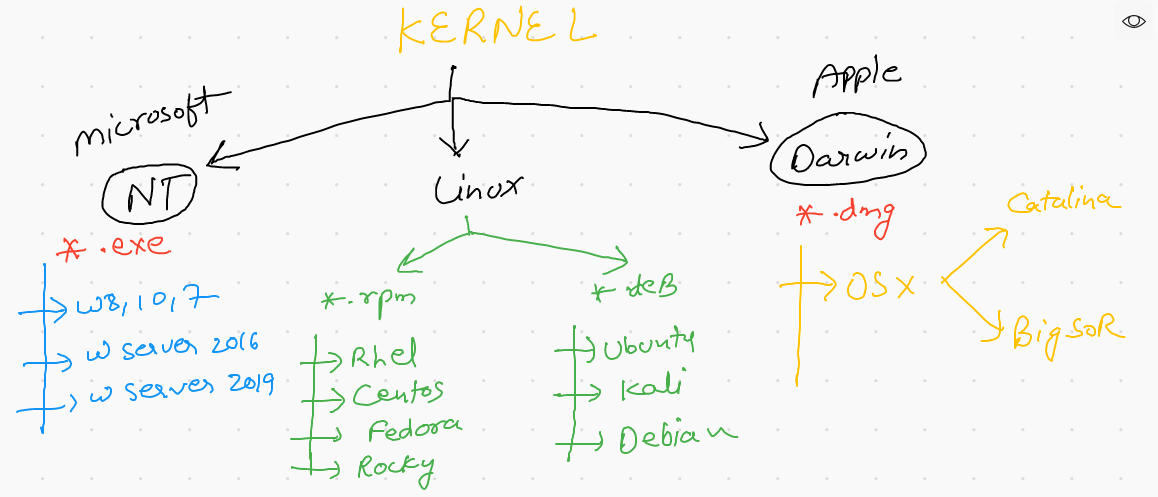 KERNEL
microsoft
NT
*.exe
W8,10,7
W server 2016
W server 2019
Linux
*.rpm
Rhel
Centos
Fedora
Rocky
*.deB
Ubuntu
Kali
Debian
Apple
Darwin
*.dmg
OSX
Catalina
BigSoR